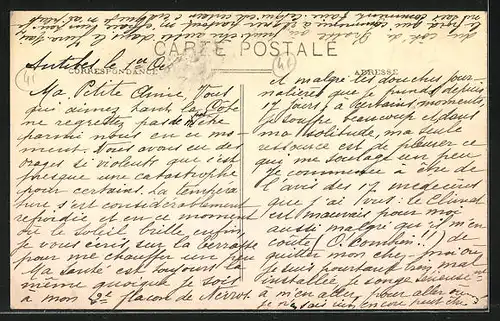 CARTE POSTALE
CORRESPONDANCE
ADRESSE
Antibes le 1er
Ma Petite Amie, Vous
qui aimez tant la Côte
ne regrettez pas d'être
parmi nous en ce mo-
ment. Nous avons eu des
orages si violents que c'est
presque une catastrophe
pour certains. La tempéra-
ture s'est considérablement
refroidie et en ce moment
où le soleil brille enfin,
je vous écris sur la terrasse
pour me chauffer un peu
Ma santé est toujours la
même quoique je sois
à mon 2e flacon de
et malgré les douches jour-
nalières que je prends depuis
17 jours, à certains moments,
je souffre beaucoup et dans
ma solitude, ma seule
ressource est de pleurer ce
qui me soulage un peu
Je commence à être de
l'avis des 17 médecins
que j'ai vus: le climat
est mauvais pour moi
aussi malgré qu'il m'en
coûte (O Combien!!) de
quitter mon chez-moi où
je suis pourtant bien mal
installée je songe sérieuse-nt
à m'en aller, pour aller où
je n'en sais rien encore peut être